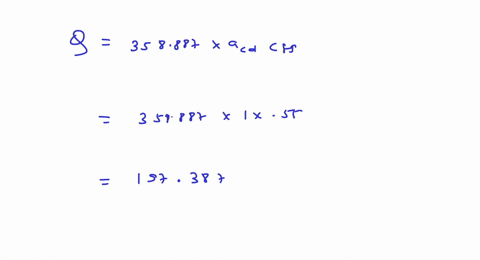 Q = 358.887 × a_cd cfs
= 359.887 × 1 × .55
= 197.387